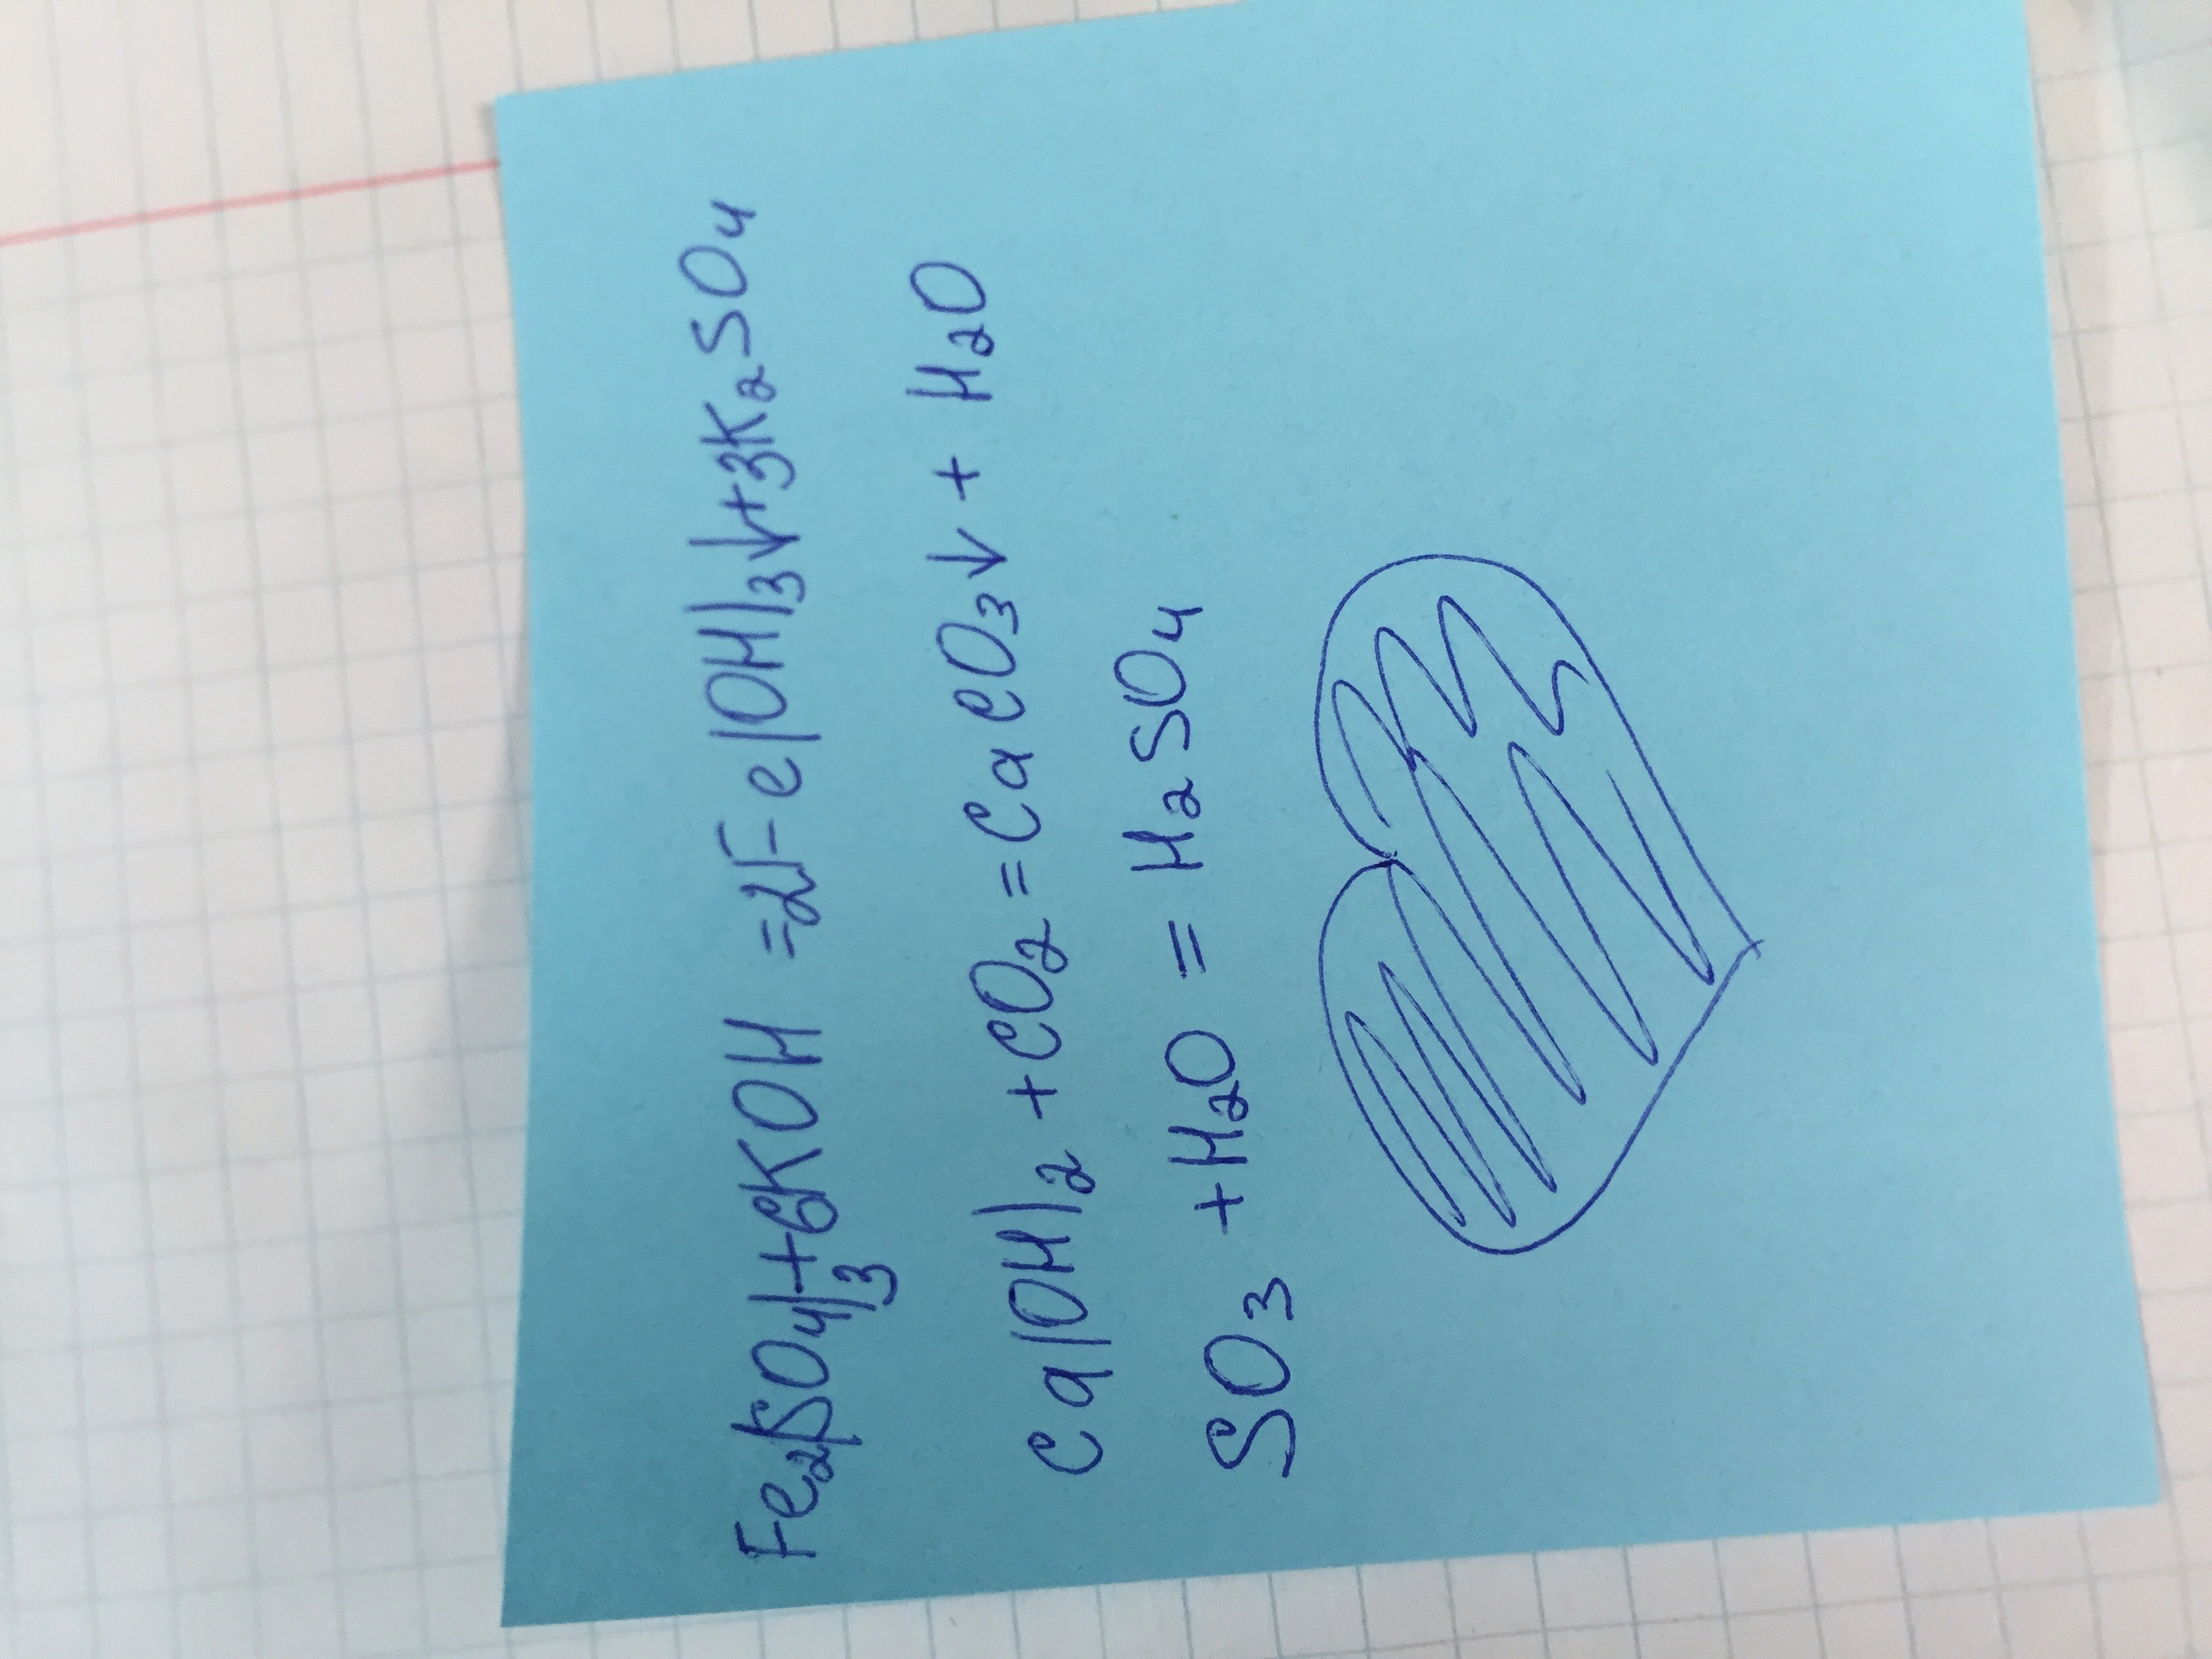 Fe₂(SO₄)₃+6KOH =2Fe(OH)₃↓+3K₂SO₄
Ca(OH)₂ +CO₂=CaCO₃↓ + H₂O
SO₃ +H₂O = H₂SO₄